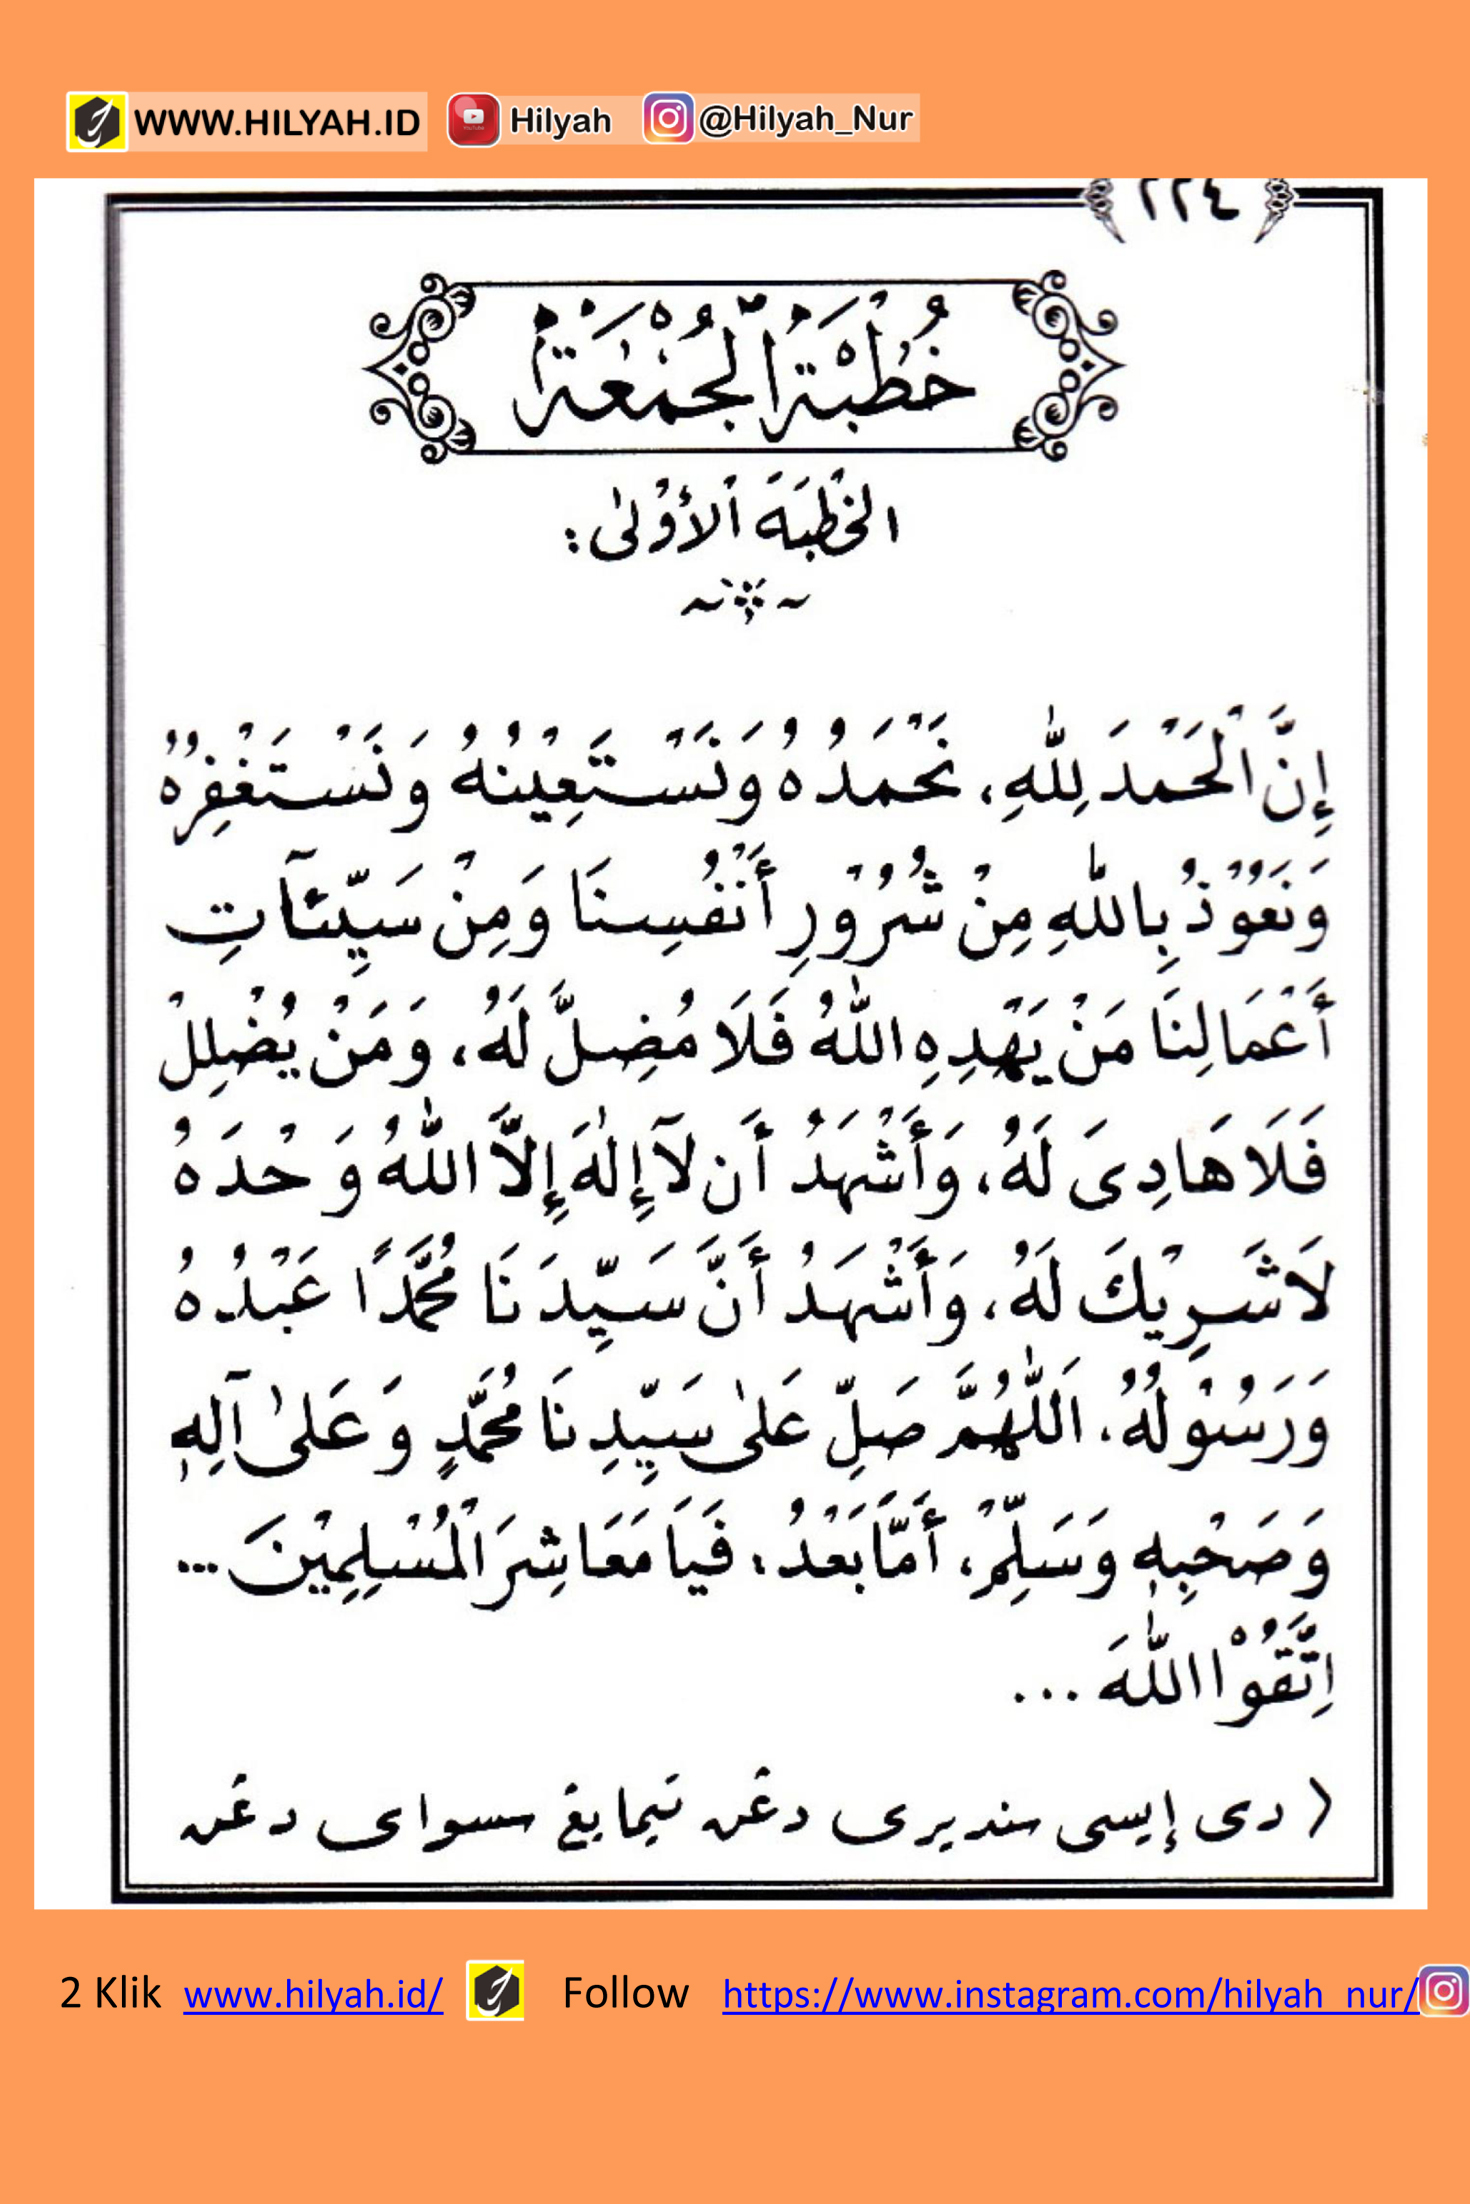 WWW.HILYAH.ID Hilyah @Hilyah_Nur
٢٢٤
خُطْبَةُ الْجُمْعَةِ
الخُطْبَةَ الأُوْلٰى:
إِنَّ الْحَمْدَ لِلّٰهِ، نَحْمَدُهُ وَنَسْتَعِيْنُهُ وَنَسْتَغْفِرُهُ
وَنَعُوْذُ بِاللّٰهِ مِنْ شُرُوْرِ أَنْفُسِنَا وَمِنْ سَيِّئَآتِ
أَعْمَالِنَا مَنْ يَهْدِهِ اللّٰهُ فَلَا مُضِلَّ لَهُ، وَمَنْ يُضْلِلْ
فَلَا هَادِىَ لَهُ، وَأَشْهَدُ أَن لَآ إِلٰهَ إِلَّا اللّٰهُ وَحْدَهُ
لَا شَرِيْكَ لَهُ، وَأَشْهَدُ أَنَّ سَيِّدَنَا مُحَمَّدًا عَبْدُهُ
وَرَسُوْلُهُ، اَللّٰهُمَّ صَلِّ عَلٰى سَيِّدِنَا مُحَمَّدٍ وَعَلٰى آلِهٖ
وَصَحْبِهٖ وَسَلِّمْ، أَمَّا بَعْدُ، فَيَا مَعَاشِرَ الْمُسْلِمِيْنَ ...
اِتَّقُوْا اللّٰهَ ...
( دى إيسى سنديرى دڠن تيما يڠ سسواى دڠن
2 Klik www.hilyah.id/ Follow https://www.instagram.com/hilyah_nur/